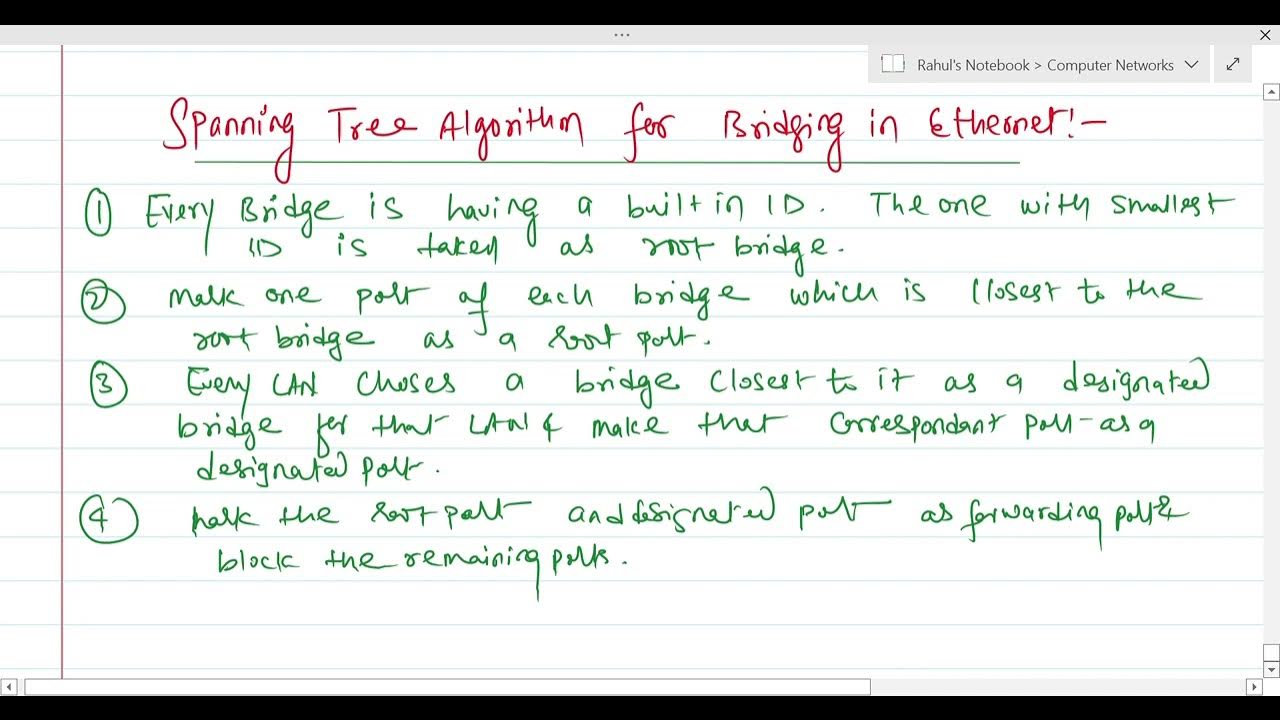 ...
Rahul's Notebook > Computer Networks
Spanning Tree Algorithm for Bridging in Ethernet:-
① Every Bridge is having a built in ID. The one with smallest
ID is taken as root bridge.
② Mark one port of each bridge which is closest to the
root bridge as a root port.
③ Every LAN choses a bridge closest to it as a designated
bridge for that LAN & make that correspondant port as a
designated port.
④ Mark the root port and designated port as forwarding port &
block the remaining ports.